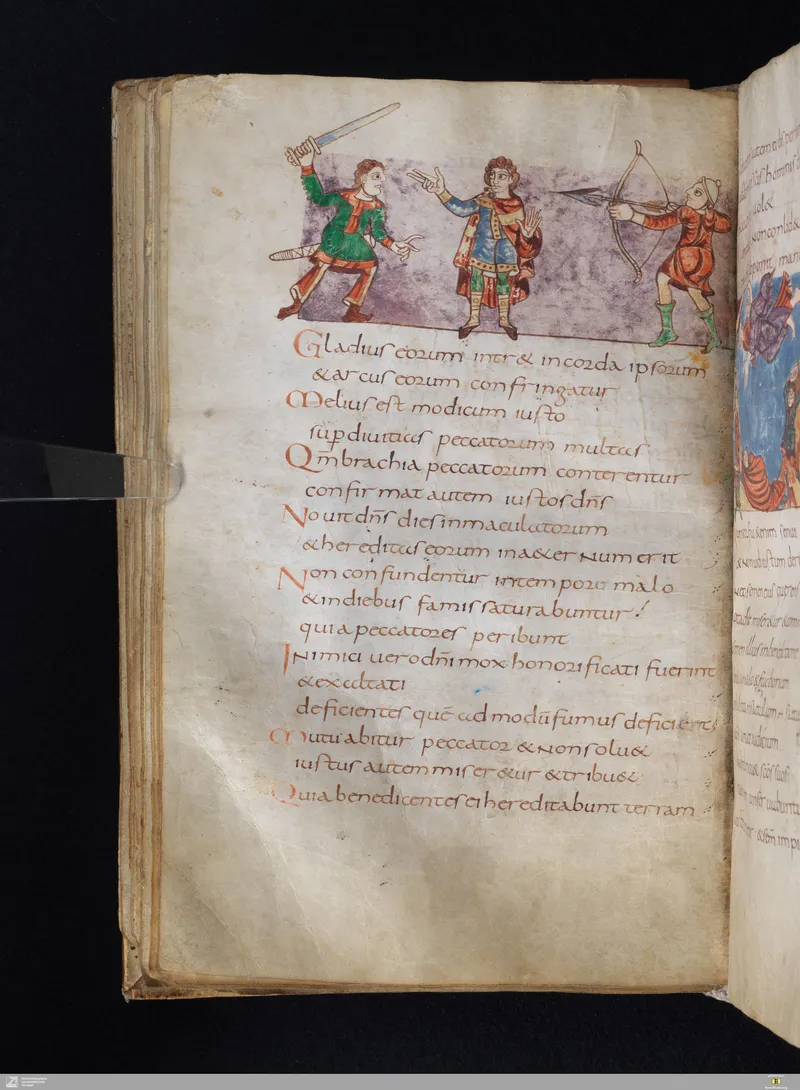 Gladius eorum intr& incorda ipsorum
&arcus eorum confringatur
Melius est modicum iusto
sup diuitias peccatorum multas
Qm̄ brachia peccatorum conterentur
confirmat autem iustos dn̄s
Nouit dn̄s dies inmaculatorum
&hereditas eorum ina&ernum erit
Non confundentur intempore malo
&indiebus famis saturabuntur
quia peccatores peribunt
Inimici uero dn̄i mox honorificati fuerint
&exaltati
deficientes quē ad modū fumus deficient
Mutuabitur peccator &non solu&
iustus autem miser&ur &tribu&
Quia benedicentes ei hereditabunt terram